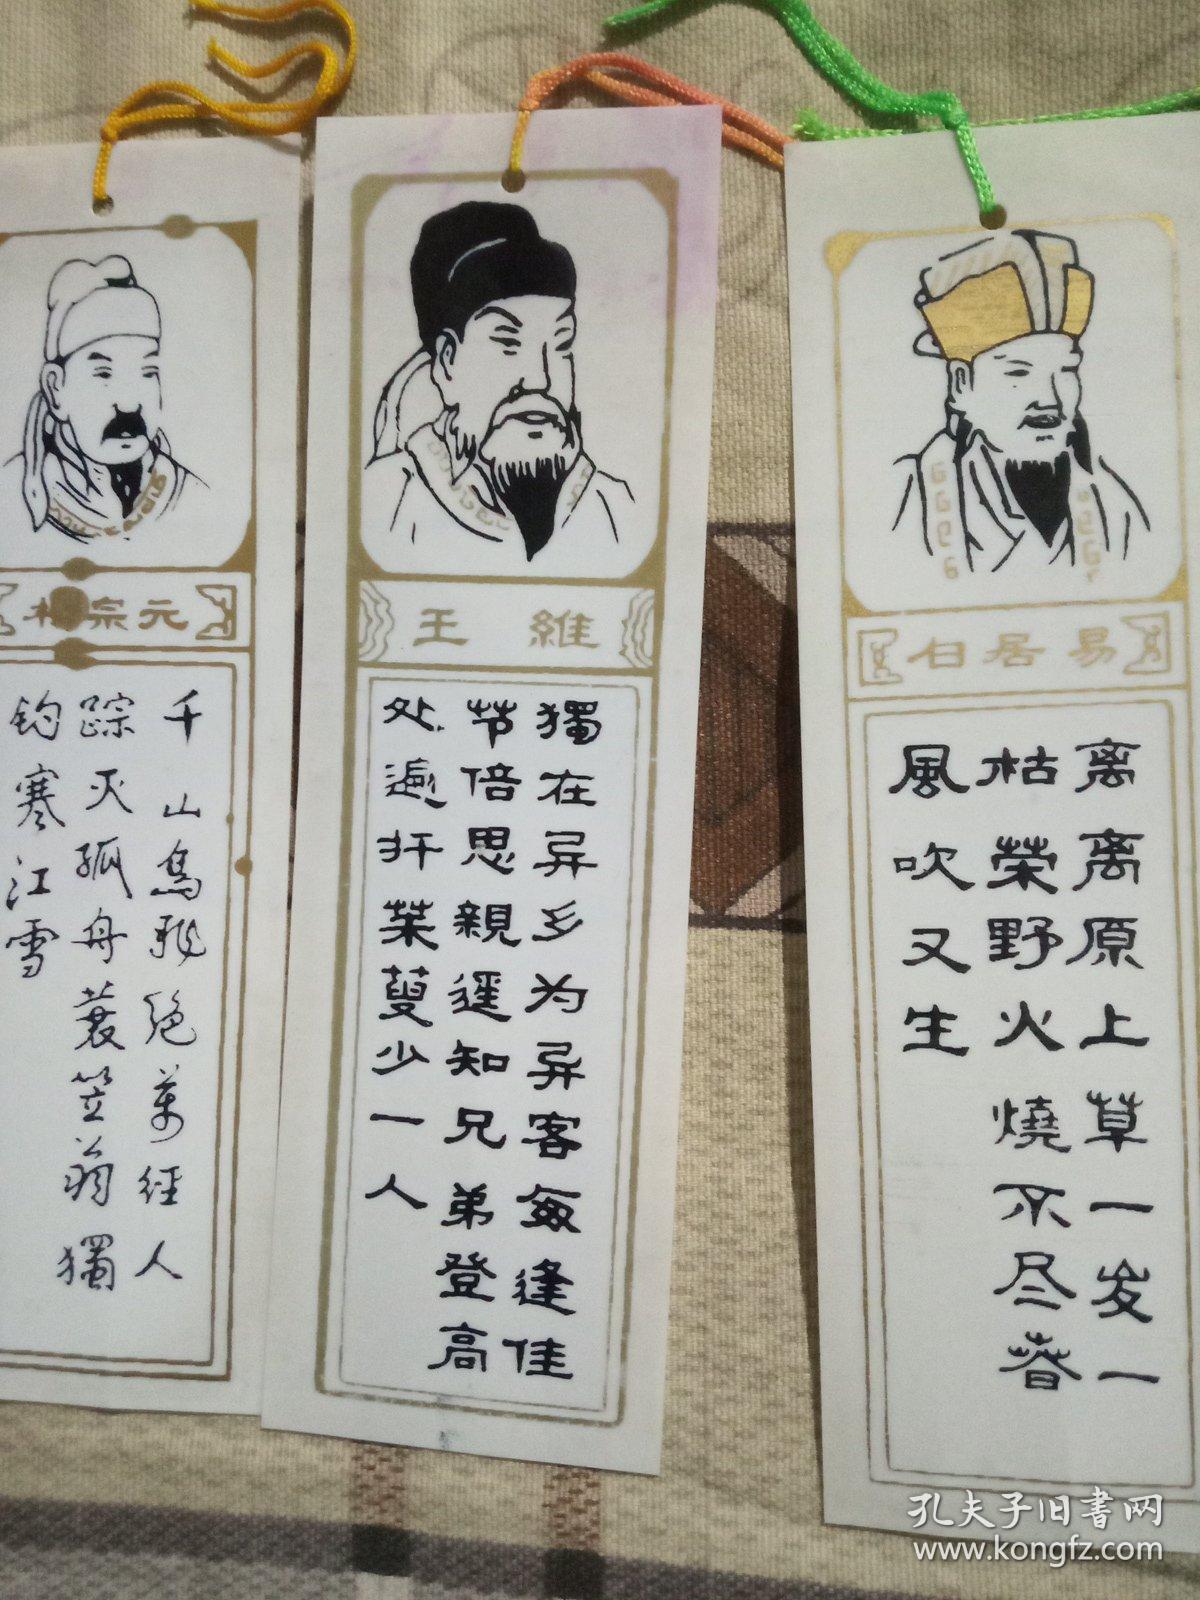 柳宗元
千山鳥飛绝萬径人
踪灭孤舟蓑笠翁獨
钓寒江雪
王維
獨在异乡为异客每逢佳
节倍思親遥知兄弟登高
处遍扦茱萸少一人
白居易
离离原上草一岁一
枯荣野火燒不尽春
風吹又生
孔夫子旧書网
www.kongfz.com